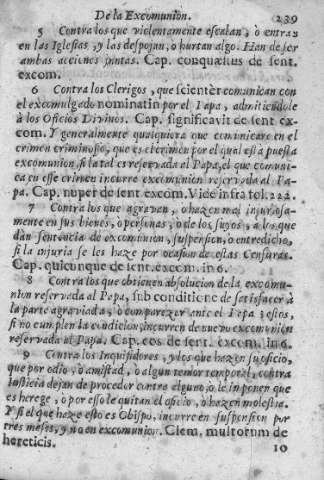 De la Excomunion. 239
5 Contra los que violentamente escalan, ò entran
en las Iglesias, y las despojan, o hurtan algo. Han de ser
ambas acciones juntas. Cap. conquæstus de sent.
excom.
6 Contra los Clerigos, que scienter comunican con
el excomulgado nominatin por el Papa, admitiendole
à los Oficios Divinos. Cap. significavit de sent ex-
com. Y generalmente qualquiera que comunicare en el
crimen criminoso, que es el crimen por el qual està puesta
excomunion, si la tal es reservada al Papa, el que comuni-
ca en esse crimen incurre excomunion reservada al Pa-
pa. Cap. nuper de sent excom. Vide infra fol. 222.
7 Contra los que agravan, o hazen mal injuriosa-
mente en sus bienes, ò personas, ò de los suyos, a los que
dan sentencia de excomunion, suspension, o entredicho,
si la injuria se les haze por ocasion de estas Censuras.
Cap. quicunque de sent. excom. in 6.
8 Contra los que obtienen absolucion de la excomu-
nion reservada al Papa, sub conditione de satisfacer à
la parte agraviada, ò comparezer ante el Papa: estos,
si no cumplen la condicion, incurren de nuevo excomunion
reservada al Papa. Cap. eos de sent. excom. in 6.
9 Contra los Inquisidores, y los que hazen su oficio,
que por odio, ò amistad, ò algun temor temporal, contra
Iusticia dejan de proceder contra alguno, o le imponen que
es herege, ò por esso le quitan el oficio, ò hazen molestia.
Y si el que haze esto es Obispo, incurre en suspension por
tres meses, y no en excomunion. Clem. multorum de
hereticis.
10